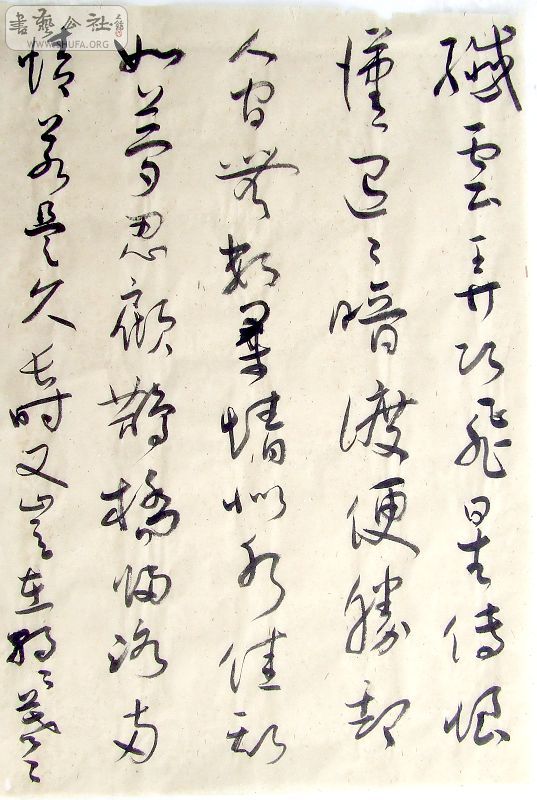 書藝公社
WWW.SHUFA.ORG
纖雲弄巧飛星傳恨
漢迢〻暗渡便勝却
人間無數柔情似水佳期
如夢忍顧鵲橋歸路兩
情若是久長時又豈在朝〻暮〻